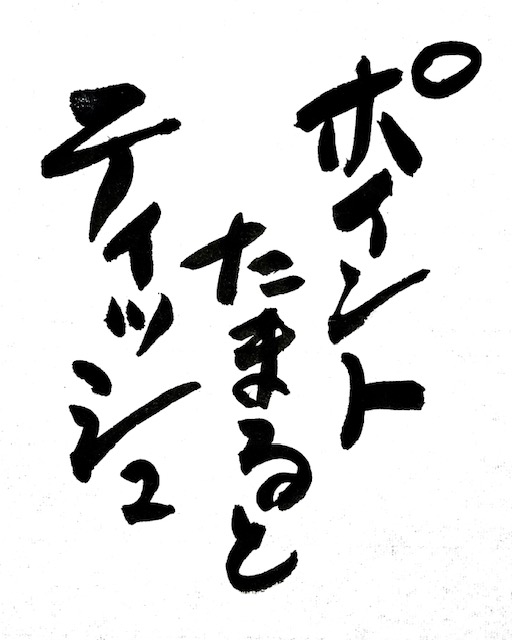 ポイント
たまると
ティッシュ